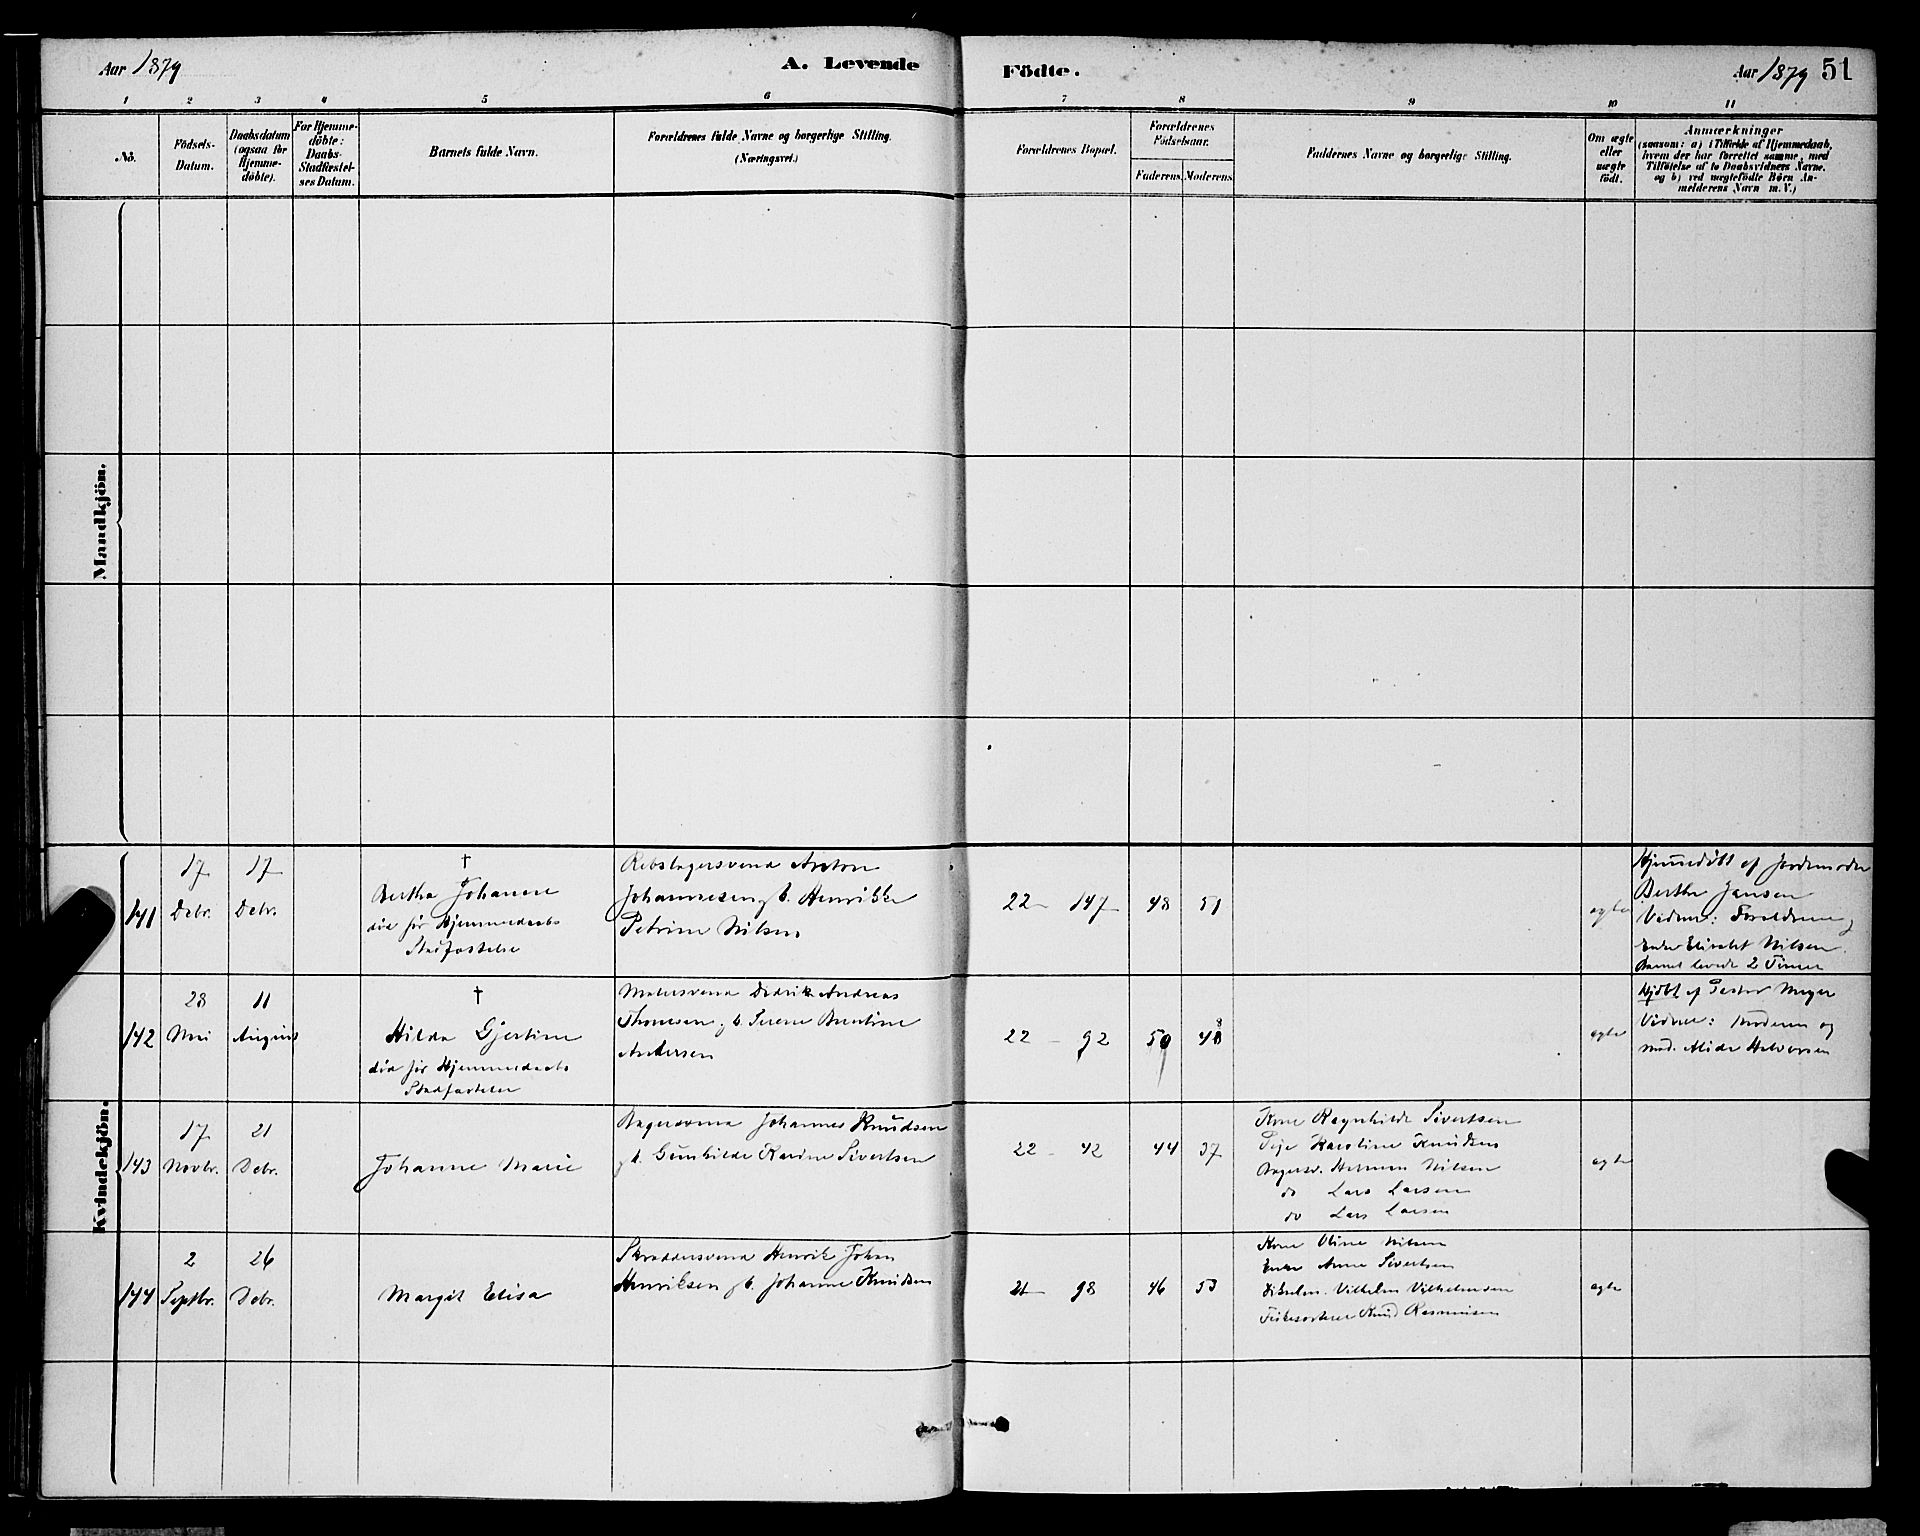 Aar 1879
A. Levende
Födte.
Aar 1879 51
1 2 3 4 5 6 7 8 9 10 11
No.
Födsels-
Datum.
Daabsdatum
(ogsaa for
Hjemme-
döbte).
For Hjemme-
döbte:
Daabs-
Stadfæstel-
ses Datum.
Barnets fulde Navn.
Forældrenes fulde Navne og borgerlige Stilling.
(Næringsvei.)
Forældrenes Bopæl.
Forældrenes
Födselsaar.
Faderens. Moderens.
Faddernes Navne og borgerlige Stilling.
Om ægte
eller
uægte
födt.
Anmærkninger
(saasom: a) i Tilfælde af Hjemmedaab,
hvem der har forrettet samme, med
Tilföielse af to Daabsvidners Navne,
og b) ved uægtefödte Börn An-
melderens Navn m. V.)
Mandkjön.
Kvindekjön.
141
17
Debr.
17
Debr.
†
Bertha Johanne
död før Hjemmedaabs
Stadfæstelse
Rebslagersvend Anton
Johannesen, g. b. Henrikke
Petrine Nilsen
22 - 147
48
51
ægte
Hjemmedöbt af Jordemoder
Berthe Jansen
Vidner: Forældrene og
Enke Elisabet Nilsen.
Barnet levede 2 Timer
142
28
Mai
11
August
†
Hilda Gjertine
död før Hjemmedaabs
Stadfæstelse
Malersvend Didrik Andreas
Thomsen g. b. Serene Berntine
Andersen
22 - 92
50
48
ægte
Hjdbt af Pastor Meyer
Vidner: Moderen og
Mad. Alida Halvorsen
143
17
Novbr.
21
Debr.
Johanne Marie
Bagersvend Johannes Knudsen
g. b. Gunhilde Karine Sivertsen
22 - 42
44
37
Kone Ragnhilde Sivertsen
Pige Karoline Knudsen
Bagersv. Herman Nilsen
do Lars Larsen
do Lars Larsen
ægte
144
2
Septbr.
26
Debr.
Margit Elisa
Skræddersvend Henrik Johan
Henriksen g. b. Johanne Knudsen
21 - 98
46
53
Kone Oline Nilsen
Enke Anne Sivertsen
Vilhelm Vilhelmsen
Fiskesorterer Knud Rasmussen
ægte